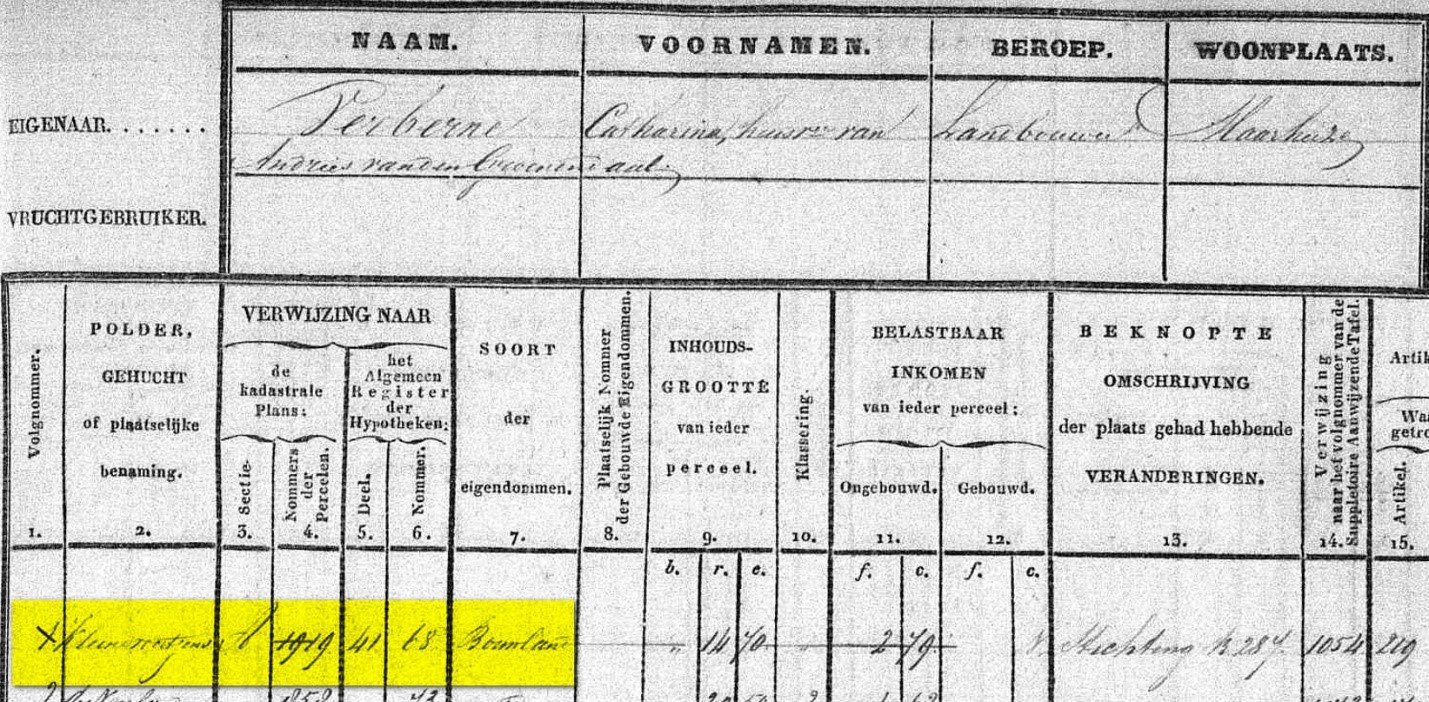 NAAM. VOORNAMEN. BEROEP. WOONPLAATS.
EIGENAAR. . . . . . . Verberne Catharina, huisv. van Landbouwer Maarheze
Andries vanden
VRUCHTGEBRUIKER.
Volgnommer.
1.
POLDER,
GEHUCHT
of plaatselijke
benaming.
2.
VERWIJZING NAAR
de
kadastrale
Plans:
Sectie.
3.
Nommers
der
Percelen.
4.
het
Algemeen
Register
der
Hypotheken:
Deel.
5.
Nommer.
6.
SOORT
der
eigendommen.
7.
Plaatselijk Nommer
der Gebouwde Eigendommen.
8.
INHOUDS-
GROOTTE
van ieder
perceel.
9.
Klassering.
10.
BELASTBAAR
INKOMEN
van ieder perceel:
Ongebouwd.
11.
Gebouwd.
12.
BEKNOPTE
OMSCHRIJVING
der plaats gehad hebbende
VERANDERINGEN.
13.
Verwijzing
naar het volgnommer van de
Suppletoire Aanwijzende Tafel.
14.
Artikel.
15.
b. r. e. f. c. f. c.
1 1919 41 68 Bouwland " 14 70 " 2 79 Stichting 1054 219
2 858